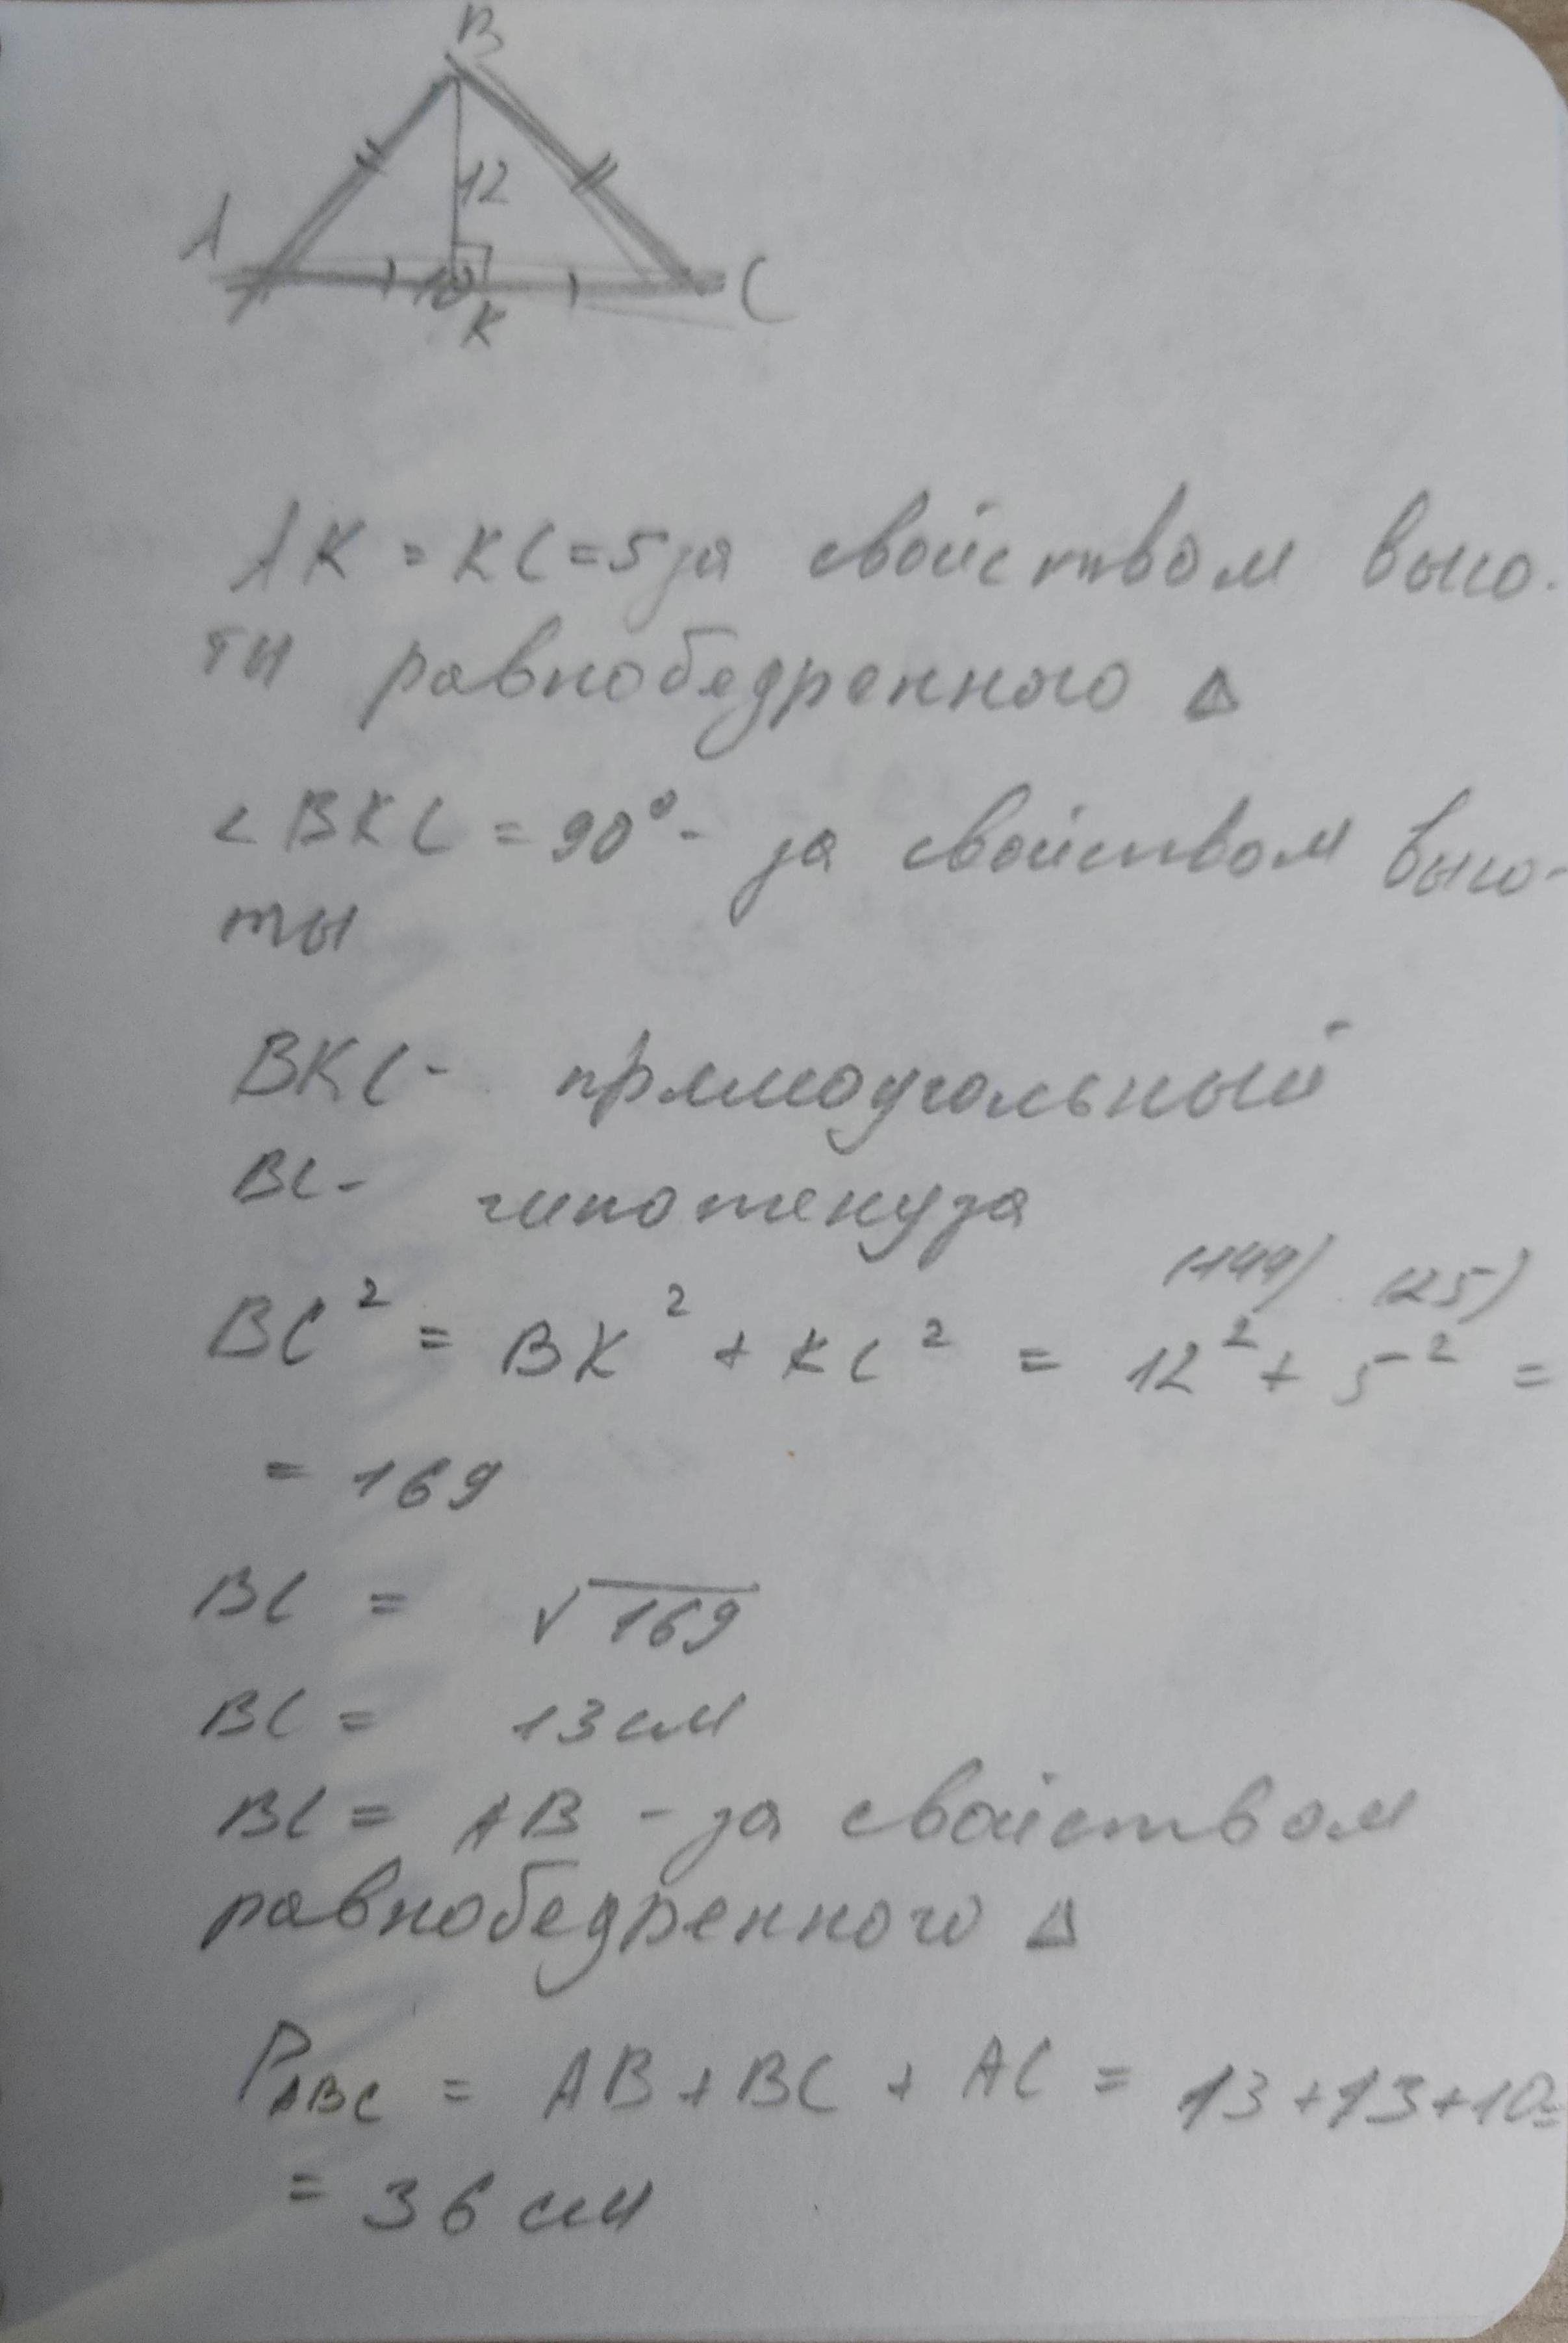 B
12
A
10
K
C
AK = KC = 5 за свойством высо-
ты равнобедренного Δ
∠BKC = 90° - за свойством высо-
ты
BKC - прямоугольный
BC - гипотенуза
(144) (25)
BC² = BK² + KC² = 12² + 5² =
= 169
BC = √169
BC = 13 см
BC = AB - за свойством
равнобедренного Δ
P ABC = AB + BC + AC = 13 + 13 + 10 =
= 36 см